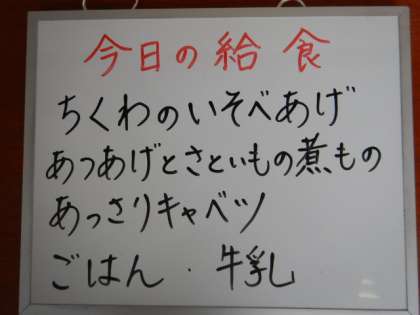 今日の給食
ちくわのいそべあげ
あつあげとさといもの煮もの
あっさりキャベツ
ごはん・牛乳